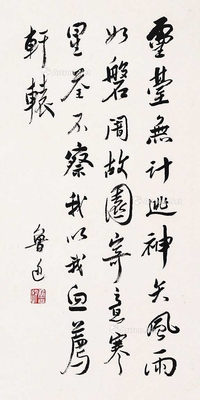 靈臺無計逃神矢風雨
如磐闇故園寄意寒
星荃不察我以我血薦
軒轅
魯迅